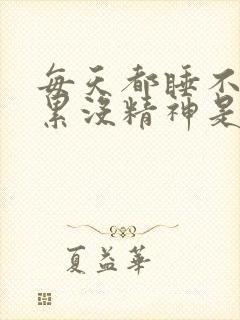 每天都睡不
累没精神是
夏益华